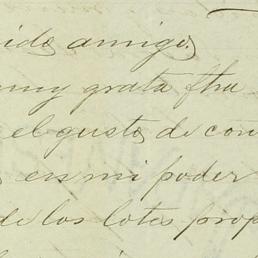 ido amigo,
muy grata fha
el gusto de con
en mi poder
de los lotes prop